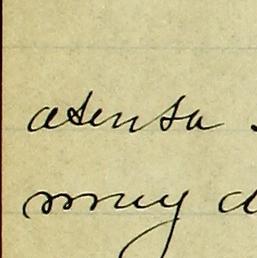 atenta
muy